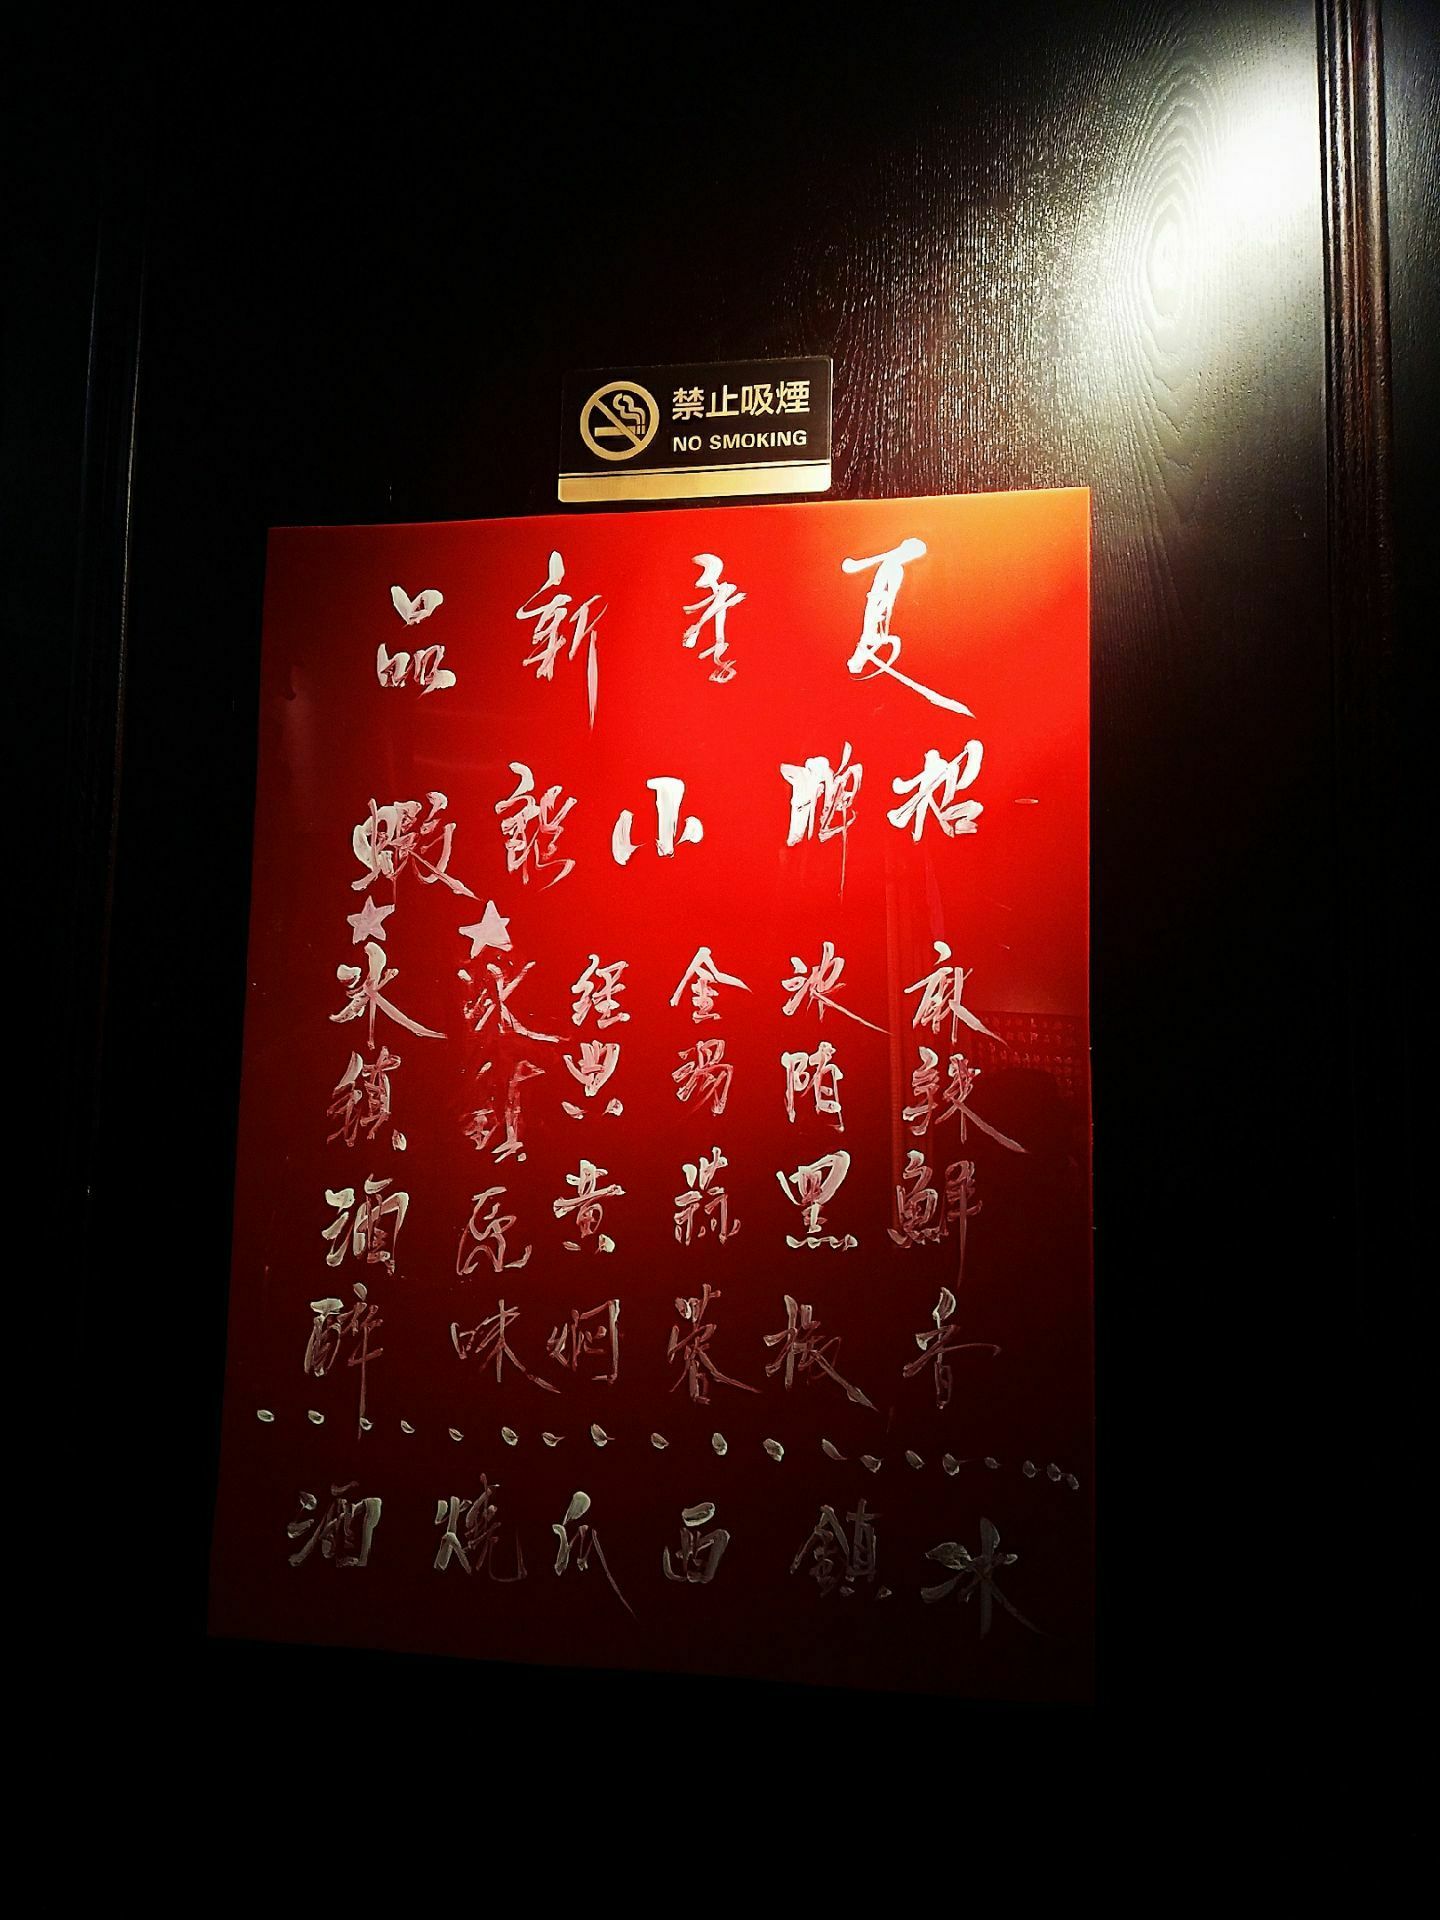 禁止吸煙
NO SMOKING
夏季新品
招牌小龍蝦
麻辣鮮香
浓情黑椒
金湯蒜蓉
經典黄焖
★冰鎮原味
★冰鎮酒醉
冰鎮西瓜燒酒